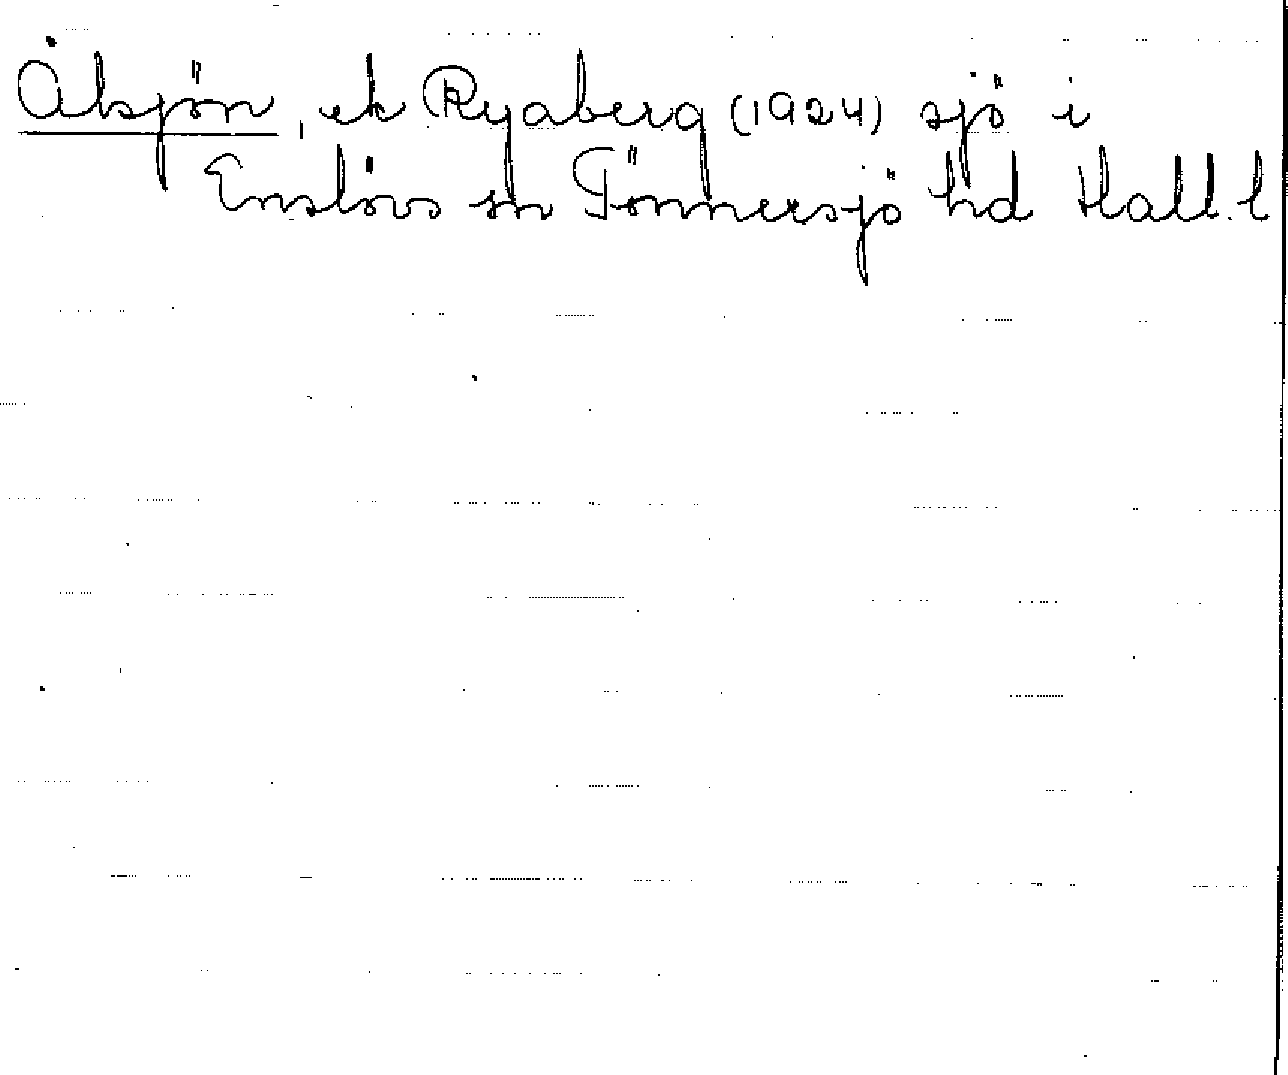 Åksjön, ek Ryaberg (1924) sjö i
Enslövs sn Tönnersjö hd Hall. l